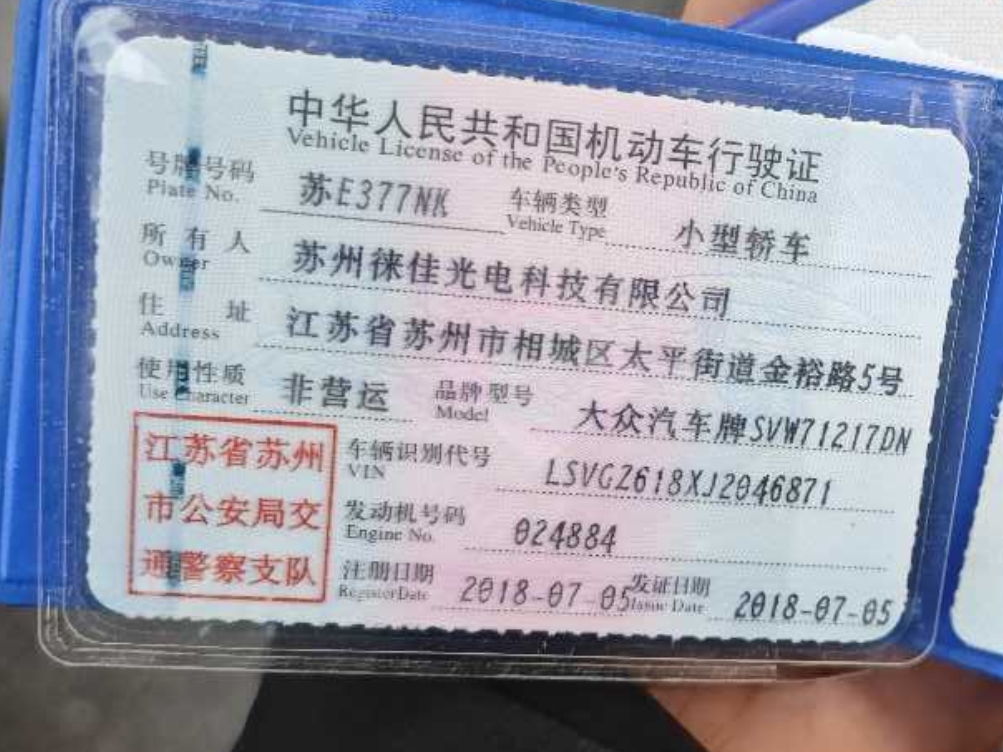 中华人民共和国机动车行驶证
Vehicle License of the People's Republic of China
号牌号码 苏E377NK 车辆类型 小型轿车
Plate No. Vehicle Type
所有人 苏州徕佳光电科技有限公司
Owner
住址 江苏省苏州市相城区太平街道金裕路5号
Address
使用性质 非营运 品牌型号 大众汽车牌SVW71217DN
Use Character Model
江苏省苏州
市公安局交
通警察支队
车辆识别代号 LSVGZ618XJ2046871
VIN
发动机号码 024884
Engine No.
注册日期 2018-07-05 发证日期 2018-07-05
Register Date Issue Date